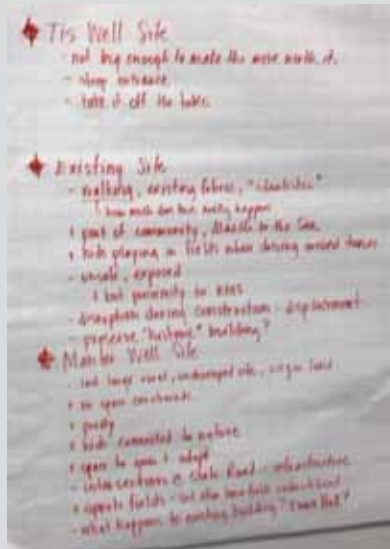 Tis Well Site
- not big enough to make the move worth it.
- steep entrance
- take it off the table.
Existing Site
- walking, existing fabric, "
how much does this really happen
+ part of community,
+ kids playing in fields when driving around
- unsafe, exposed
+ but proximity to
- disruption during construction - displacement
- preserve "historic" building?
Well Site
large rural, undeveloped site, virgin land
+ no space constraints
+ purity
+ kids connected to nature
+ space to grow & adapt
- intersection @ State Road - infrastructure
+ sports fields -
- what happens to existing building? Town Hall?